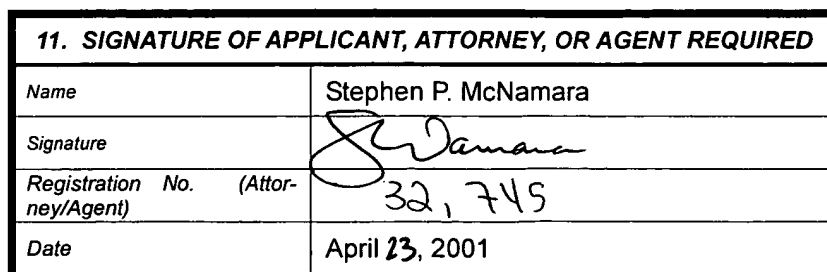 11. SIGNATURE OF APPLICANT, ATTORNEY, OR AGENT REQUIRED
Name Stephen P. McNamara
Signature
Registration No. (Attor-
ney/Agent) 32,745
Date April 23, 2001